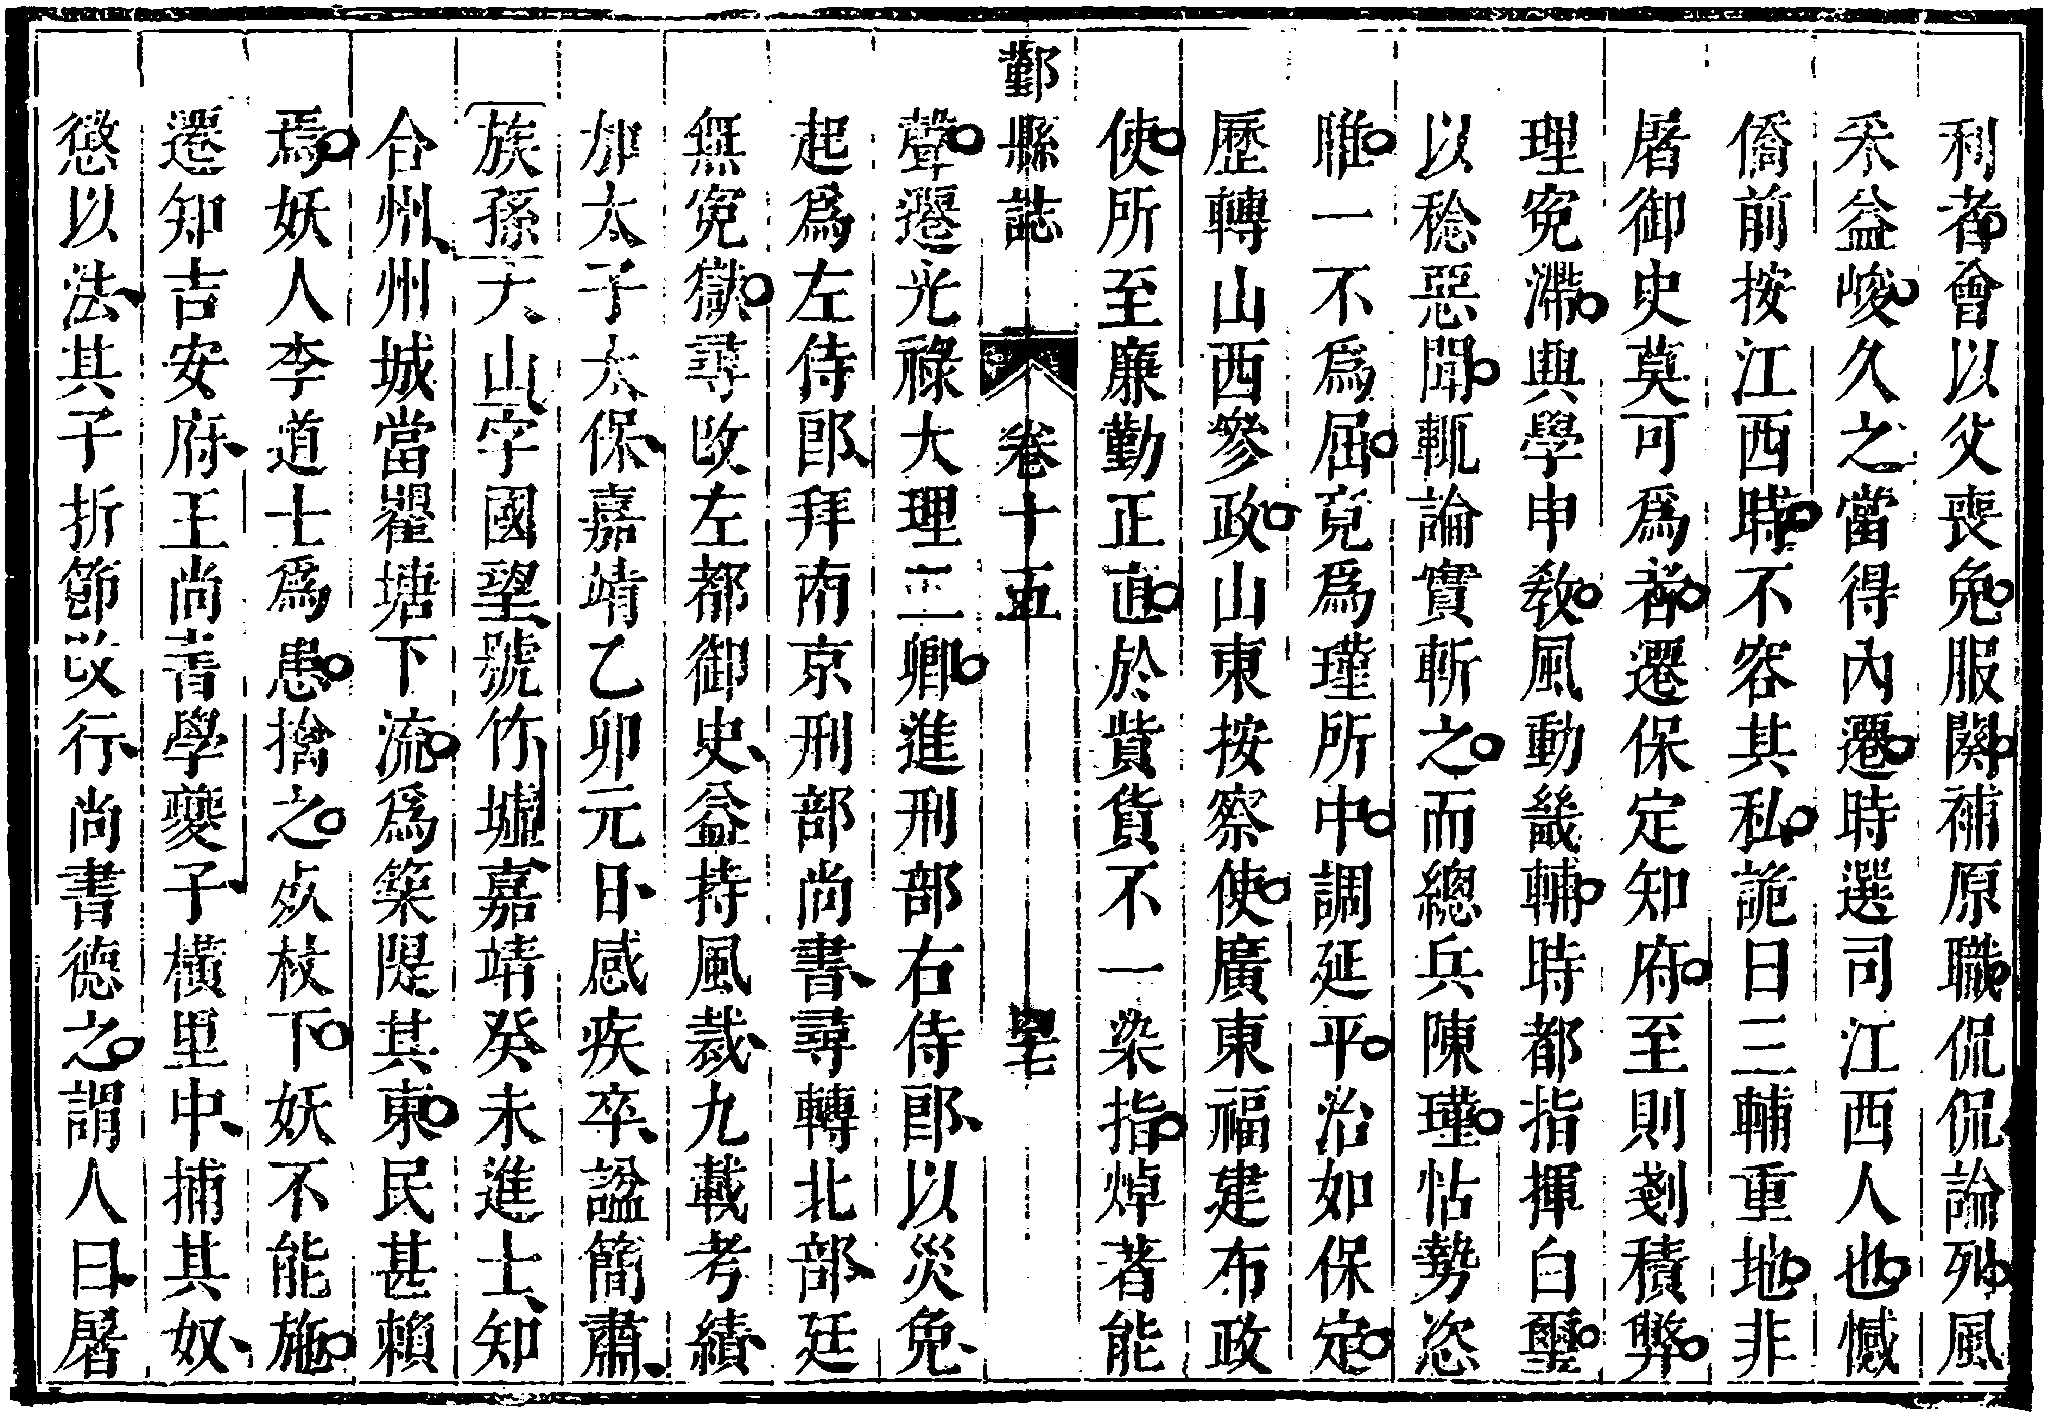 利者會以父喪免服闋補原職侃侃論列風
釆益峻久之當得內遷時選司江西人也憾
僑前按江西時不容其私詭曰三輔重地非
屠御史莫可爲者遷保定知府至則剗積弊
理寃滯興學申敎風動畿輔時都指揮白璽
以稔惡聞輒論實斬之而總兵陳瑾怙勢恣
睢一不爲屈竟爲瑾所中調延平治如保定
歷轉山西參政山東按察使廣東福建布政
使所至廉勤正直於貲貨不一染指焯著能
鄞縣誌 卷十五
聲遷光祿大理二卿進刑部右侍郞以災免
起爲左侍郞拜南京刑部尚書尋轉北部廷
無寃獄尋改左都御史益持風裁九載考績
加太子太保嘉靖乙卯元日感疾卒諡簡肅
族孫大山字國望號竹墟嘉靖癸未進士知
合州州城當瞿塘下流爲築隄其東民甚賴
焉妖人李道士爲患擒之㱕杖下妖不能施
遷知吉安府王尚書學夔子橫里中捕其奴
懲以法其子折節改行尚書德之謂人曰屠